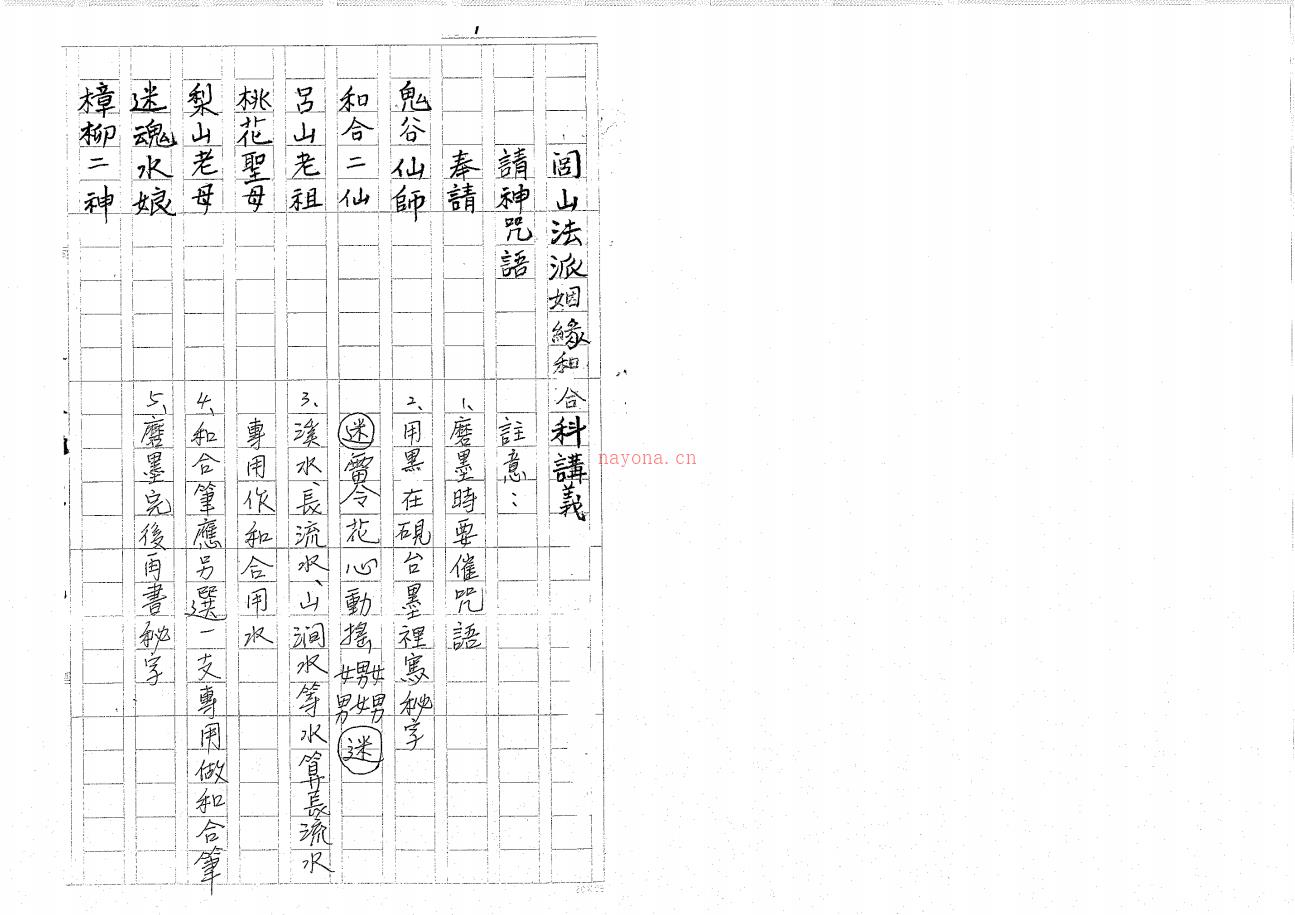 1
閭山法派姻緣和合科講義
請神咒語
奉請
鬼谷仙師
和合二仙
呂山老祖
桃花聖母
梨山老母
迷魂水娘
樟柳二神
註意：
1、磨墨時要催咒語
2、用黑在硯台墨裡寫秘字
迷 雷令花心動搖 女男女 男女男 迷
3、溪水、長流水、山澗水等水算長流水
專用作和合用水
4、和合筆應另選一支專用做和合筆
5、磨墨完後再書秘字
nayona.cn